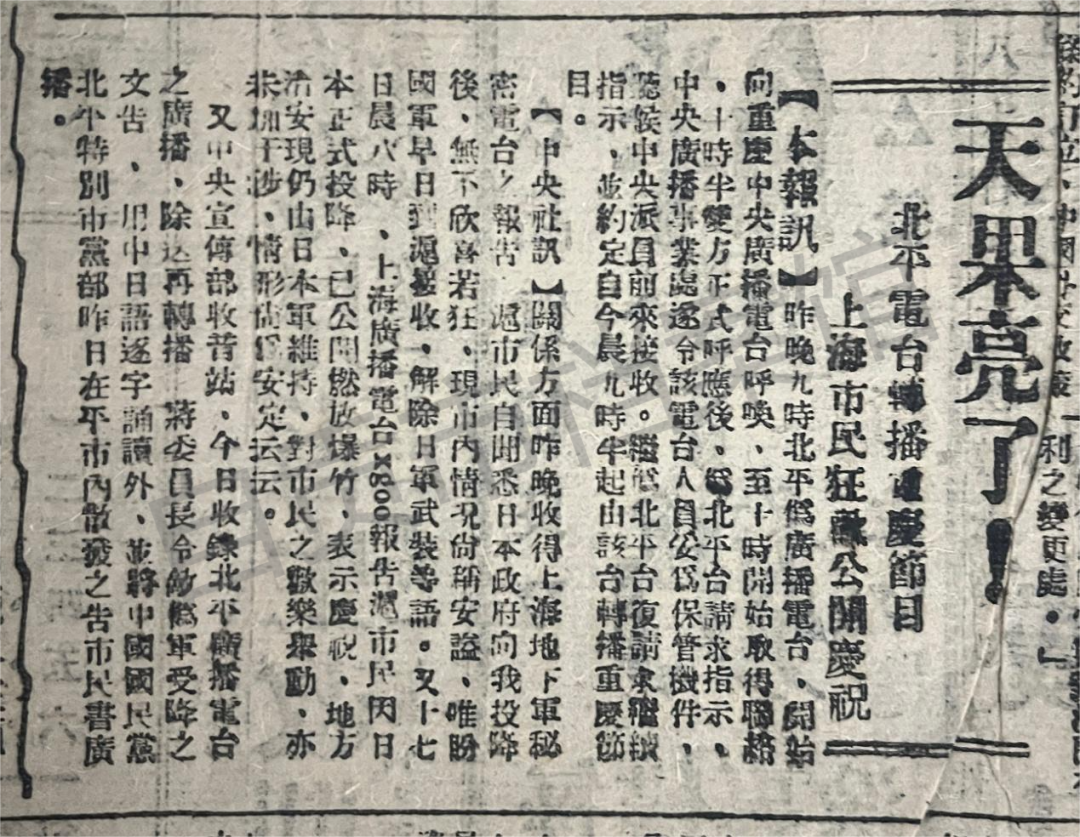 天果亮了！
北平電台轉播重慶節目
上海市民狂歡公開慶祝
【本報訊】昨晚九時北平偽廣播電台、開始
向重慶中央廣播電台呼喚、至十時開始取得聯絡
、十時半雙方正式呼應後、偽北平台請求指示、
中央廣播事業處遂令該電台人員妥為保管機件、
聽候中央派員前來接收。繼偽北平台復請求繼續
指示、並約定自今晨九時半起由該台轉播重慶節
目。
【中央社訊】關係方面昨晚收得上海地下軍秘
密電台之報告、滬市民自聞悉日本政府向我投降
後、無不欣喜若狂、現市內情況尚稱安謐、唯盼
國軍早日到滬接收、解除日軍武裝等語。又十七
日晨八時、上海廣播電台XGOO報告滬市民因日
本正式投降、已公開燃放爆竹、表示慶祝、地方
治安現仍由日本軍維持、對市民之歡樂舉動、亦
未加干涉、情形尚為安定云云。
又中央宣傳部收音站、今日收錄北平廣播電台
之廣播、除迭再轉播 蔣委員長令敵偽軍受降之
文告、用中日語逐字誦讀外、並將中國國民黨
北平特別市黨部昨日在平市內散發之告市民書廣
播。
利之變更處。」